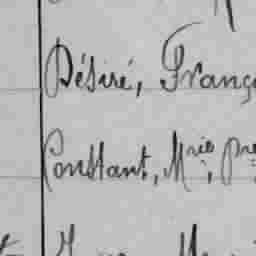 Désiré, Franç
Constant, Mrie, pre